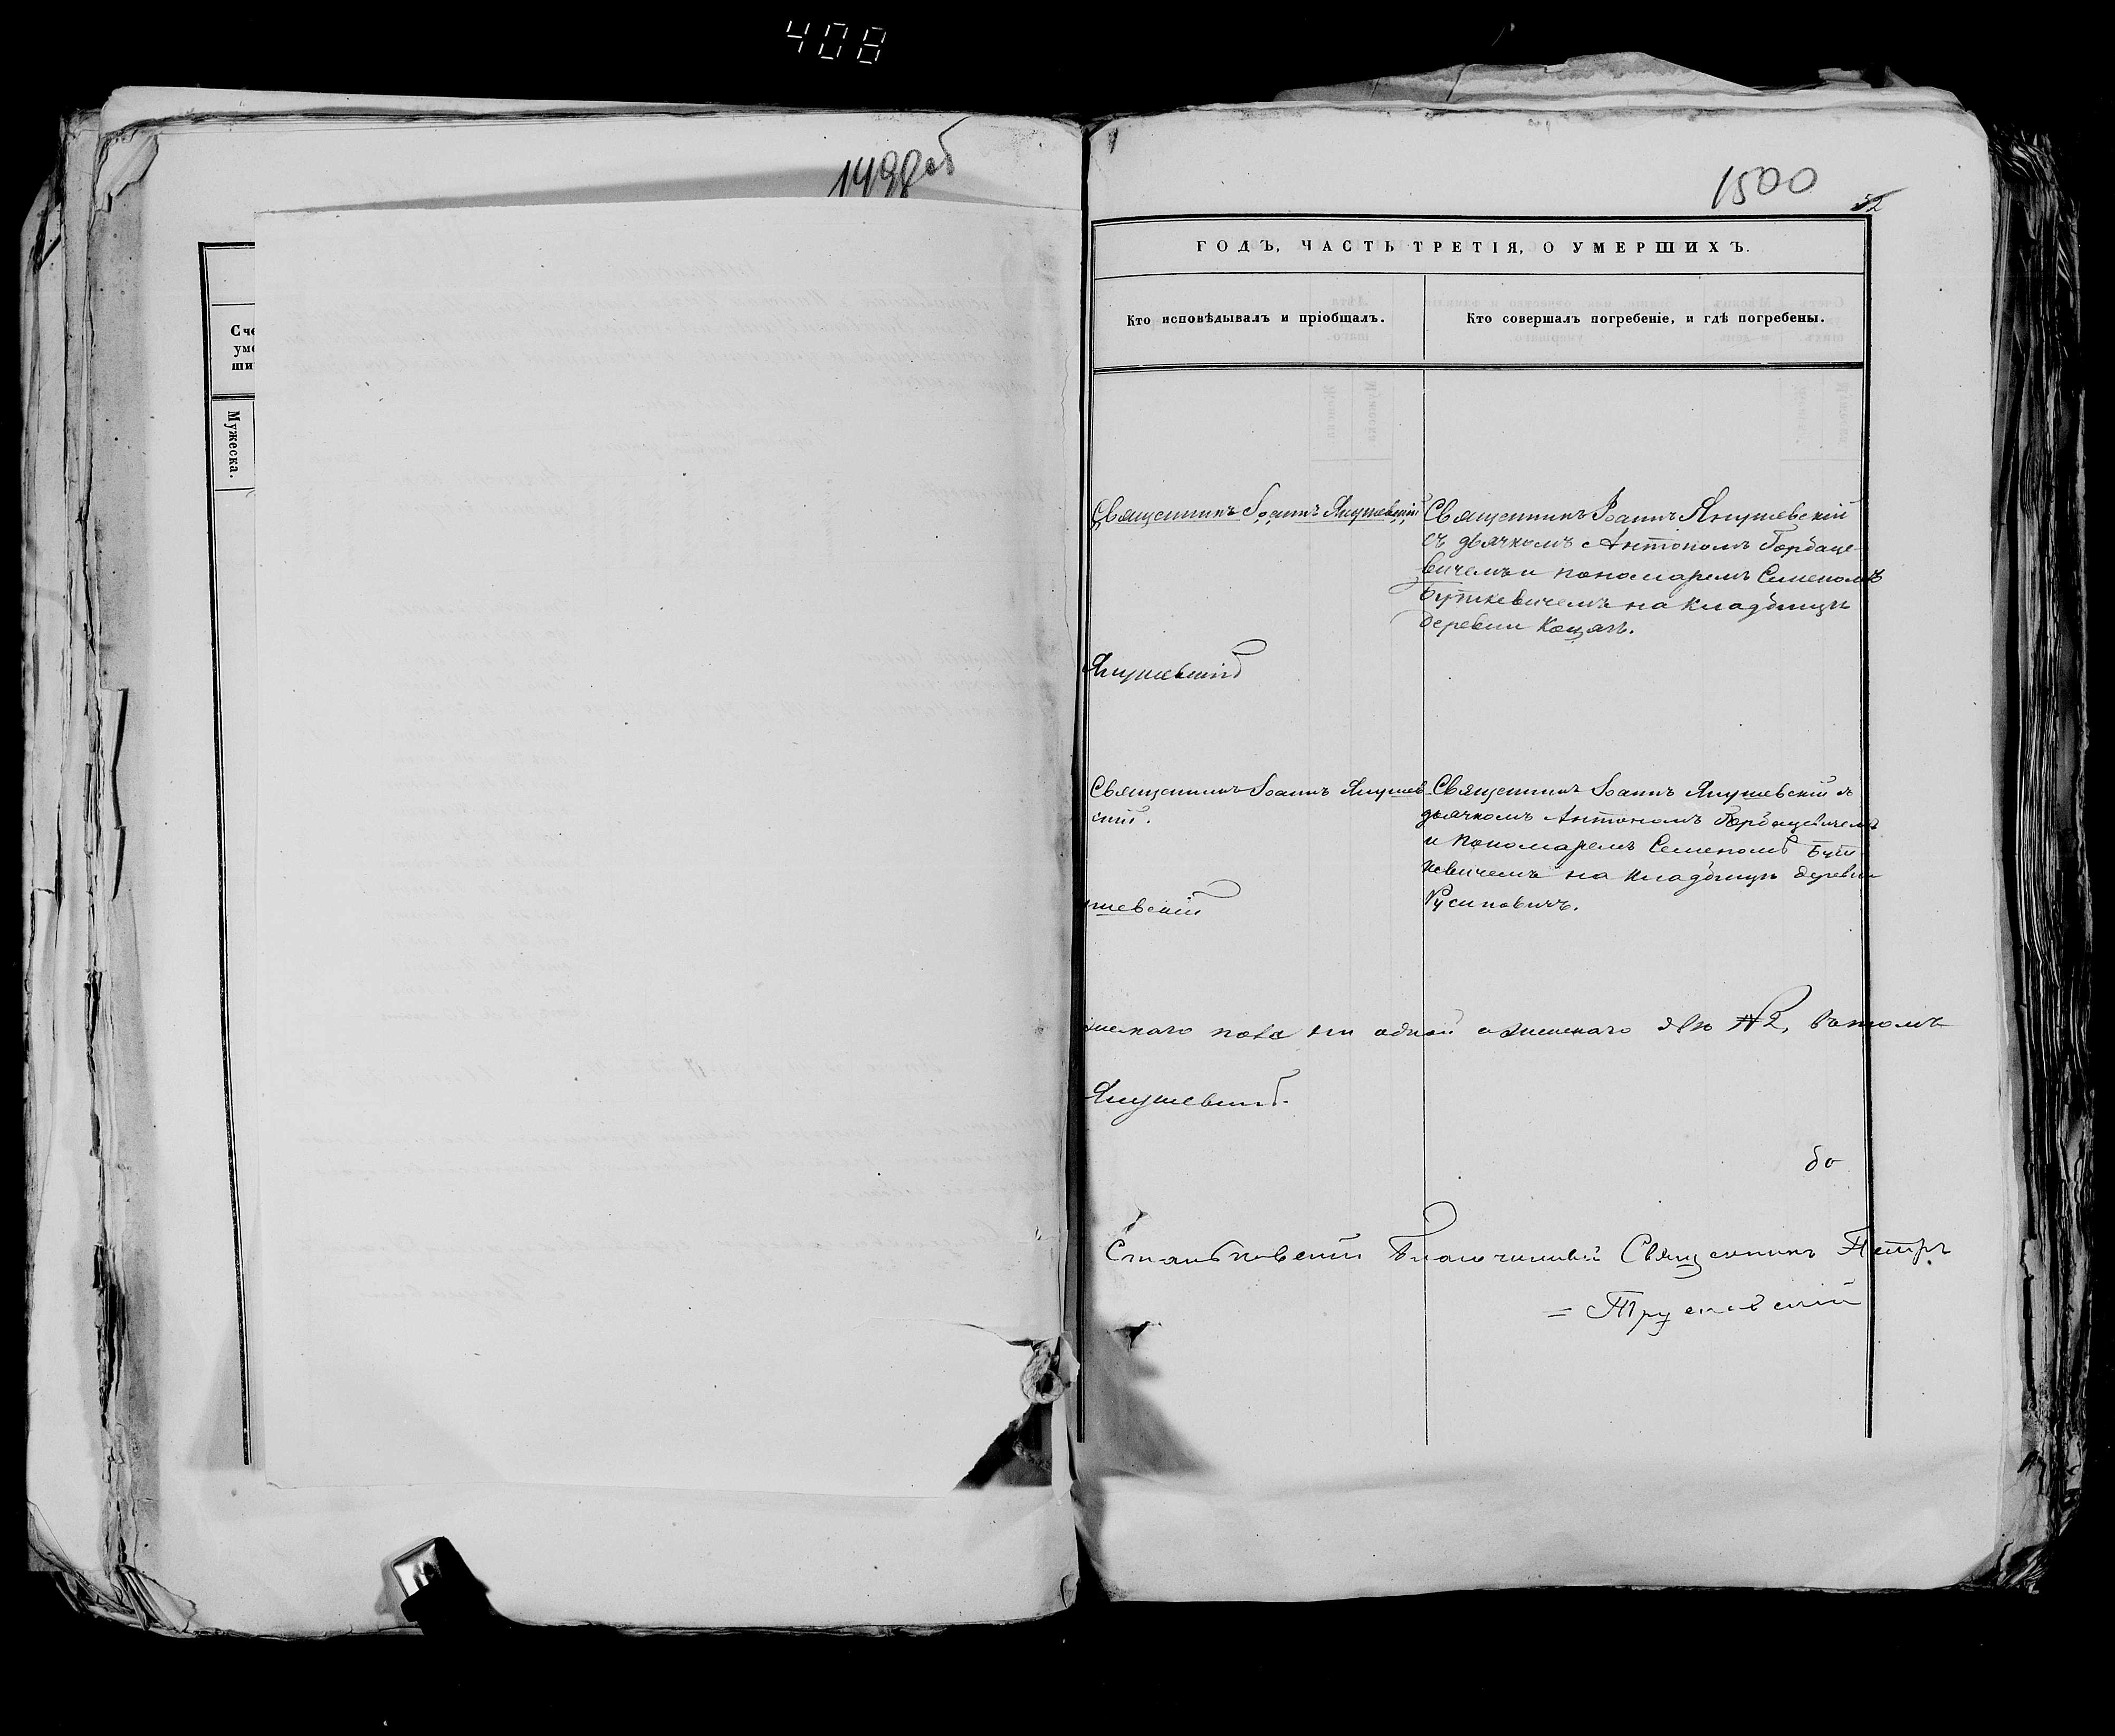 408
1499об
Сче
уме
ши
Мужеска.
1500
52
ГОДЪ, ЧАСТЬ ТРЕТІЯ, О УМЕРШИХЪ.
Кто исповѣдывалъ и пріобщалъ.
Кто совершалъ погребеніе, и гдѣ погребены.
Священникъ Іоаннъ Янушевскій
Священникъ Іоаннъ Янушевскій
съ дьячкомъ Антономъ Горбаце-
вичемъ и пономаремъ Семеномъ
Буткевичемъ на кладбищѣ
деревни
Янушевскій
Священникъ Іоаннъ Янушев
скій.
Священникъ Іоаннъ Янушевскій съ
дьячкомъ Антономъ Горбацевичемъ
и пономаремъ Семеномъ Бут
кевичемъ на кладбищѣ деревни
Русиновичъ.
шевскій
женскаго пола ни одной а женскаго двѣ №2, въ томъ
Янушевскій.
бо
Благочинный Священникъ Петръ